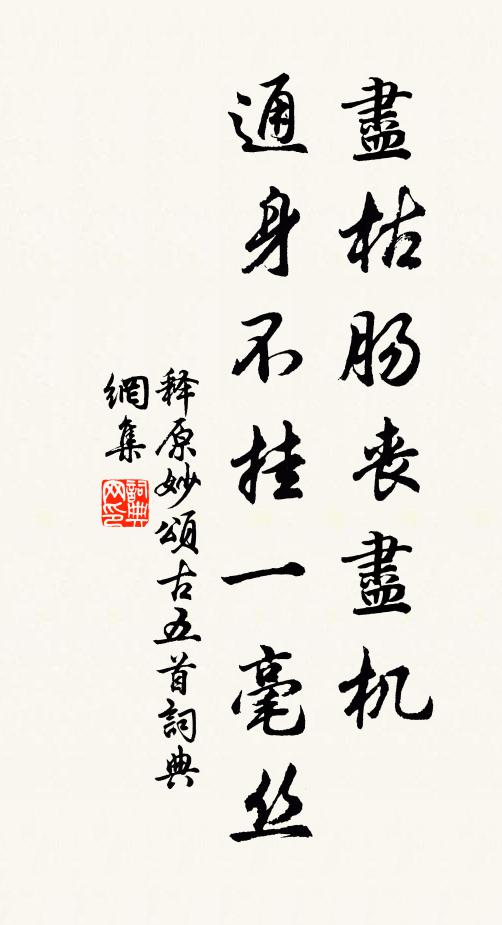 盡枯肠丧盡机
通身不挂一毫丝
释原妙頌古五首詞典
網集
詞典
网印